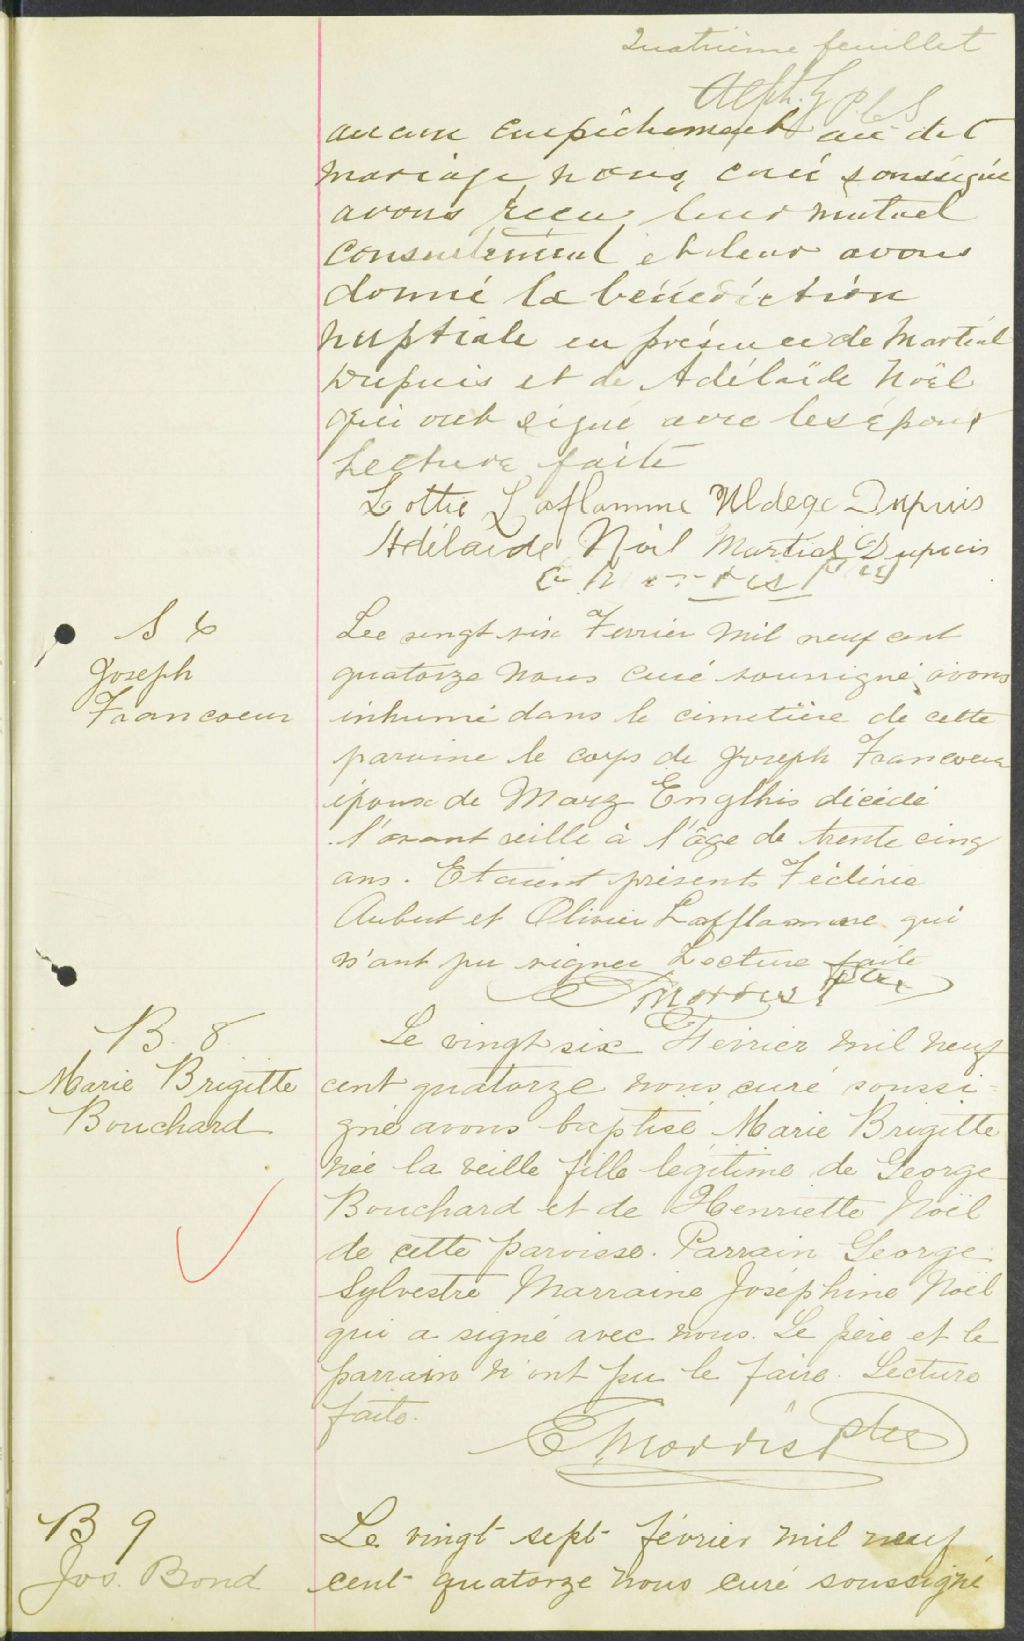 Quatrième feuillet
Alph. G P.C.S
aucun empêchement au dit
mariage, nous, curé soussigné
avons recu leur mutuel
consentement et leur avons
donné la bénédiction
nuptiale en présence de Martial
Dupuis et de Adélaïde Noël
qui ont signé avec les époux
Lecture faite
Lottie Laflamme Uldege Dupuis
Adélaide Noil Martial Dupuis
E Morris Ptre
S 6
Joseph
Francoeur
Lee vingt six Fevrier mil neuf cent
quatorze nous curé soussigné, avons
inhumé dans le cimetière de cette
paroisse le corps de Joseph Francoeur
époux de Mary Englhis décédé
l'avant veille à l'âge de trente cinq
ans. Etaient présents Féclirie
Aubut et Olivier Lafflamme qui
n'ont pu signer Lecture faite
E Morris Ptre
B. 8
Marie Brigitte
Bouchard
Le vingt six Février mil neuf
cent quatorze nous curé soussi-
gné avons baptisé Marie Brigitte
née la veille fille légitime de George
Bouchard et de Henriette Noël
de cette paroisse. Parrain George
Sylvestre Marraine Joséphine Noël
qui a signé avec nous. Le père et le
parrain n'ont pu le faire. Lecture
faite.
E Morris Ptre
B 9
Jos. Bond
Le vingt sept février mil neuf
cent quatorze nous curé soussigné